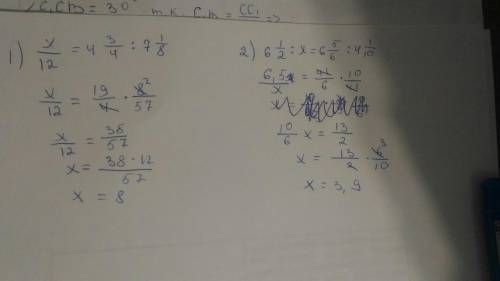 C,CB = 30° т.к. C,m = CC₁ =>
1) x/12 = 4 3/4 : 7 1/8
x/12 = 19/4 · 8²/57
x/12 = 38/57
x = 38·12/57
x = 8
2) 6 1/2 : x = 6 5/6 : 4 1/10
6,5/x = 41/6 · 10/41
10/6 x = 13/2
x = 13/2 · 6³/10
x = 3,9